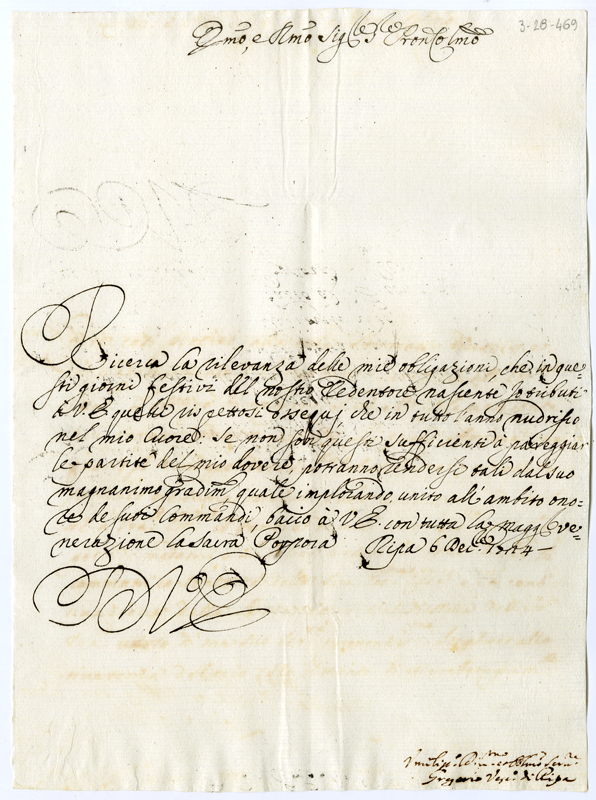 3-28-469
Emo, e Rmo Sigre Sigre Pron Colmo
Ricerca la rilevanza delle mie obligazioni che in que-
sti giorni festivi del nostro Redentore nascente Io tributi
à V.E. quelli rispettosi ossequj che in tutto l'anno nudrisco
nel mio Cuore: se non son questi sufficienti à pareggiar
le partite del mio dovere, potranno rendersi tali dal suo
magnanimo gradimto, quale implorando, unito all'ambito ono-
re de suoi Commandi, bacio à V.E. con tutta la maggre ve-
nerazione la Sacra Porpora Ripa 6 Decbre 1744 -
D V E
Umiliss. Servre
Gregorio Vesco di Ripa